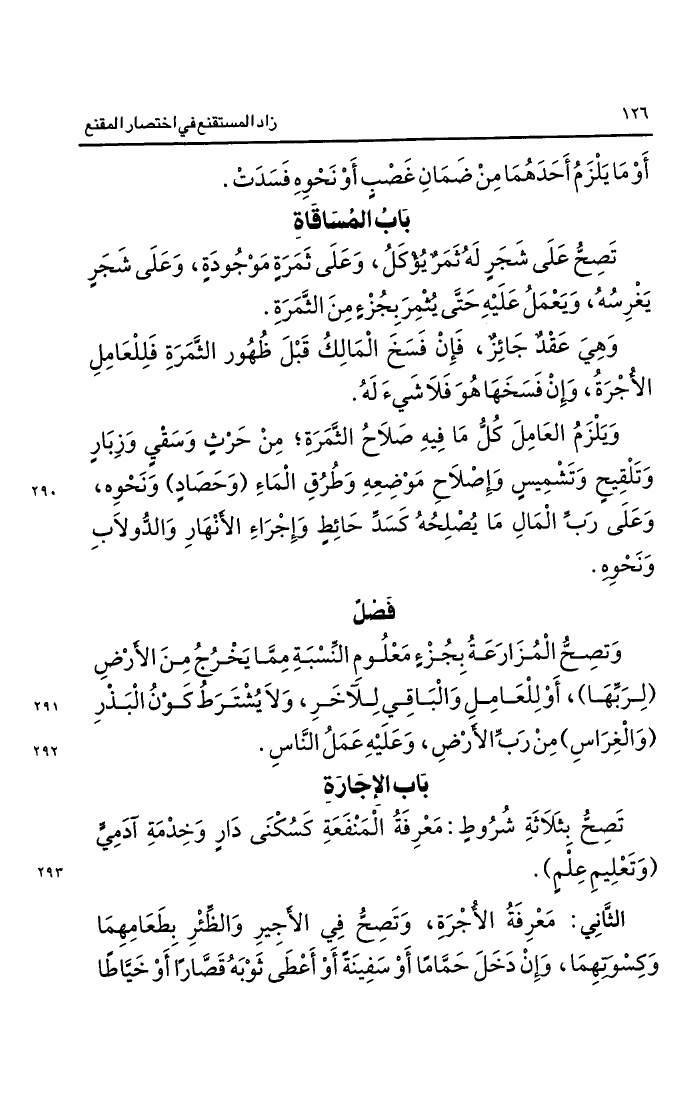 ١٢٦ زاد المستقنع في اختصار المقنع
أَوْ مَا يَلْزَمُ أَحَدَهُمَا مِنْ ضَمَانِ غَصْبٍ أَوْ نَحْوِهِ فَسَدَتْ .
بَابُ المُسَاقَاةِ
تَصِحُّ عَلَى شَجَرٍ لَهُ ثَمَرٌ يُؤْكَلُ، وَعَلَى ثَمَرَةٍ مَوْجُودَةٍ، وَعَلَى شَجَرٍ
يَغْرِسُهُ، وَيَعْمَلُ عَلَيْهِ حَتَّى يُثْمِرَ بِجُزْءٍ مِنَ الثَّمَرَةِ .
وَهِيَ عَقْدٌ جَائِزٌ، فَإِنْ فَسَخَ الْمَالِكُ قَبْلَ ظُهُورِ الثَّمَرَةِ فَلِلْعَامِلِ
الأُجْرَةُ، وَإِنْ فَسَخَهَا هُوَ فَلَا شَيْءَ لَهُ.
وَيَلْزَمُ العَامِلَ كُلُّ مَا فِيهِ صَلَاحُ الثَّمَرَةِ؛ مِنْ حَرْثٍ وَسَقْيٍ وَزِبَارٍ
وَتَلْقِيحٍ وَتَشْمِيسٍ وَإِصْلَاحِ مَوْضِعِهِ وَطُرُقِ الْمَاءِ (وَحَصَادٍ) وَنَحْوِهِ، ٢٩٠
وَعَلَى رَبِّ الْمَالِ مَا يُصْلِحُهُ كَسَدِّ حَائِطٍ وَإِجْرَاءِ الأَنْهَارِ وَالدُّولَابِ
وَنَحْوِهِ .
فَصْلٌ
وَتَصِحُّ الْمُزَارَعَةُ بِجُزْءٍ مَعْلُومِ النِّسْبَةِ مِمَّا يَخْرُجُ مِنَ الأَرْضِ
(لِرَبِّهَا)، أَوْ لِلْعَامِلِ وَالْبَاقِي لِلْآخَرِ، وَلَا يُشْتَرَطُ كَوْنُ الْبَذْرِ ٢٩١
(وَالْغِرَاسِ) مِنْ رَبِّ الأَرْضِ، وَعَلَيْهِ عَمَلُ النَّاسِ . ٢٩٢
بَاب الإجَارَةِ
تَصِحُّ بِثَلَاثَةِ شُرُوطٍ : مَعْرِفَةُ الْمَنْفَعَةِ كَسُكْنَى دَارٍ وَخِدْمَةِ آدَمِيٍّ
(وَتَعْلِيمِ عِلْمٍ) . ٢٩٣
الثَّانِي: مَعْرِفَةُ الأُجْرَةِ، وَتَصِحُّ فِي الأَجِيرِ وَالظِّئْرِ بِطَعَامِهِمَا
وَكِسْوَتِهِمَا، وَإِنْ دَخَلَ حَمَّامًا أَوْ سَفِينَةً أَوْ أَعْطَى ثَوْبَهُ قَصَّارًا أَوْ خَيَّاطًا